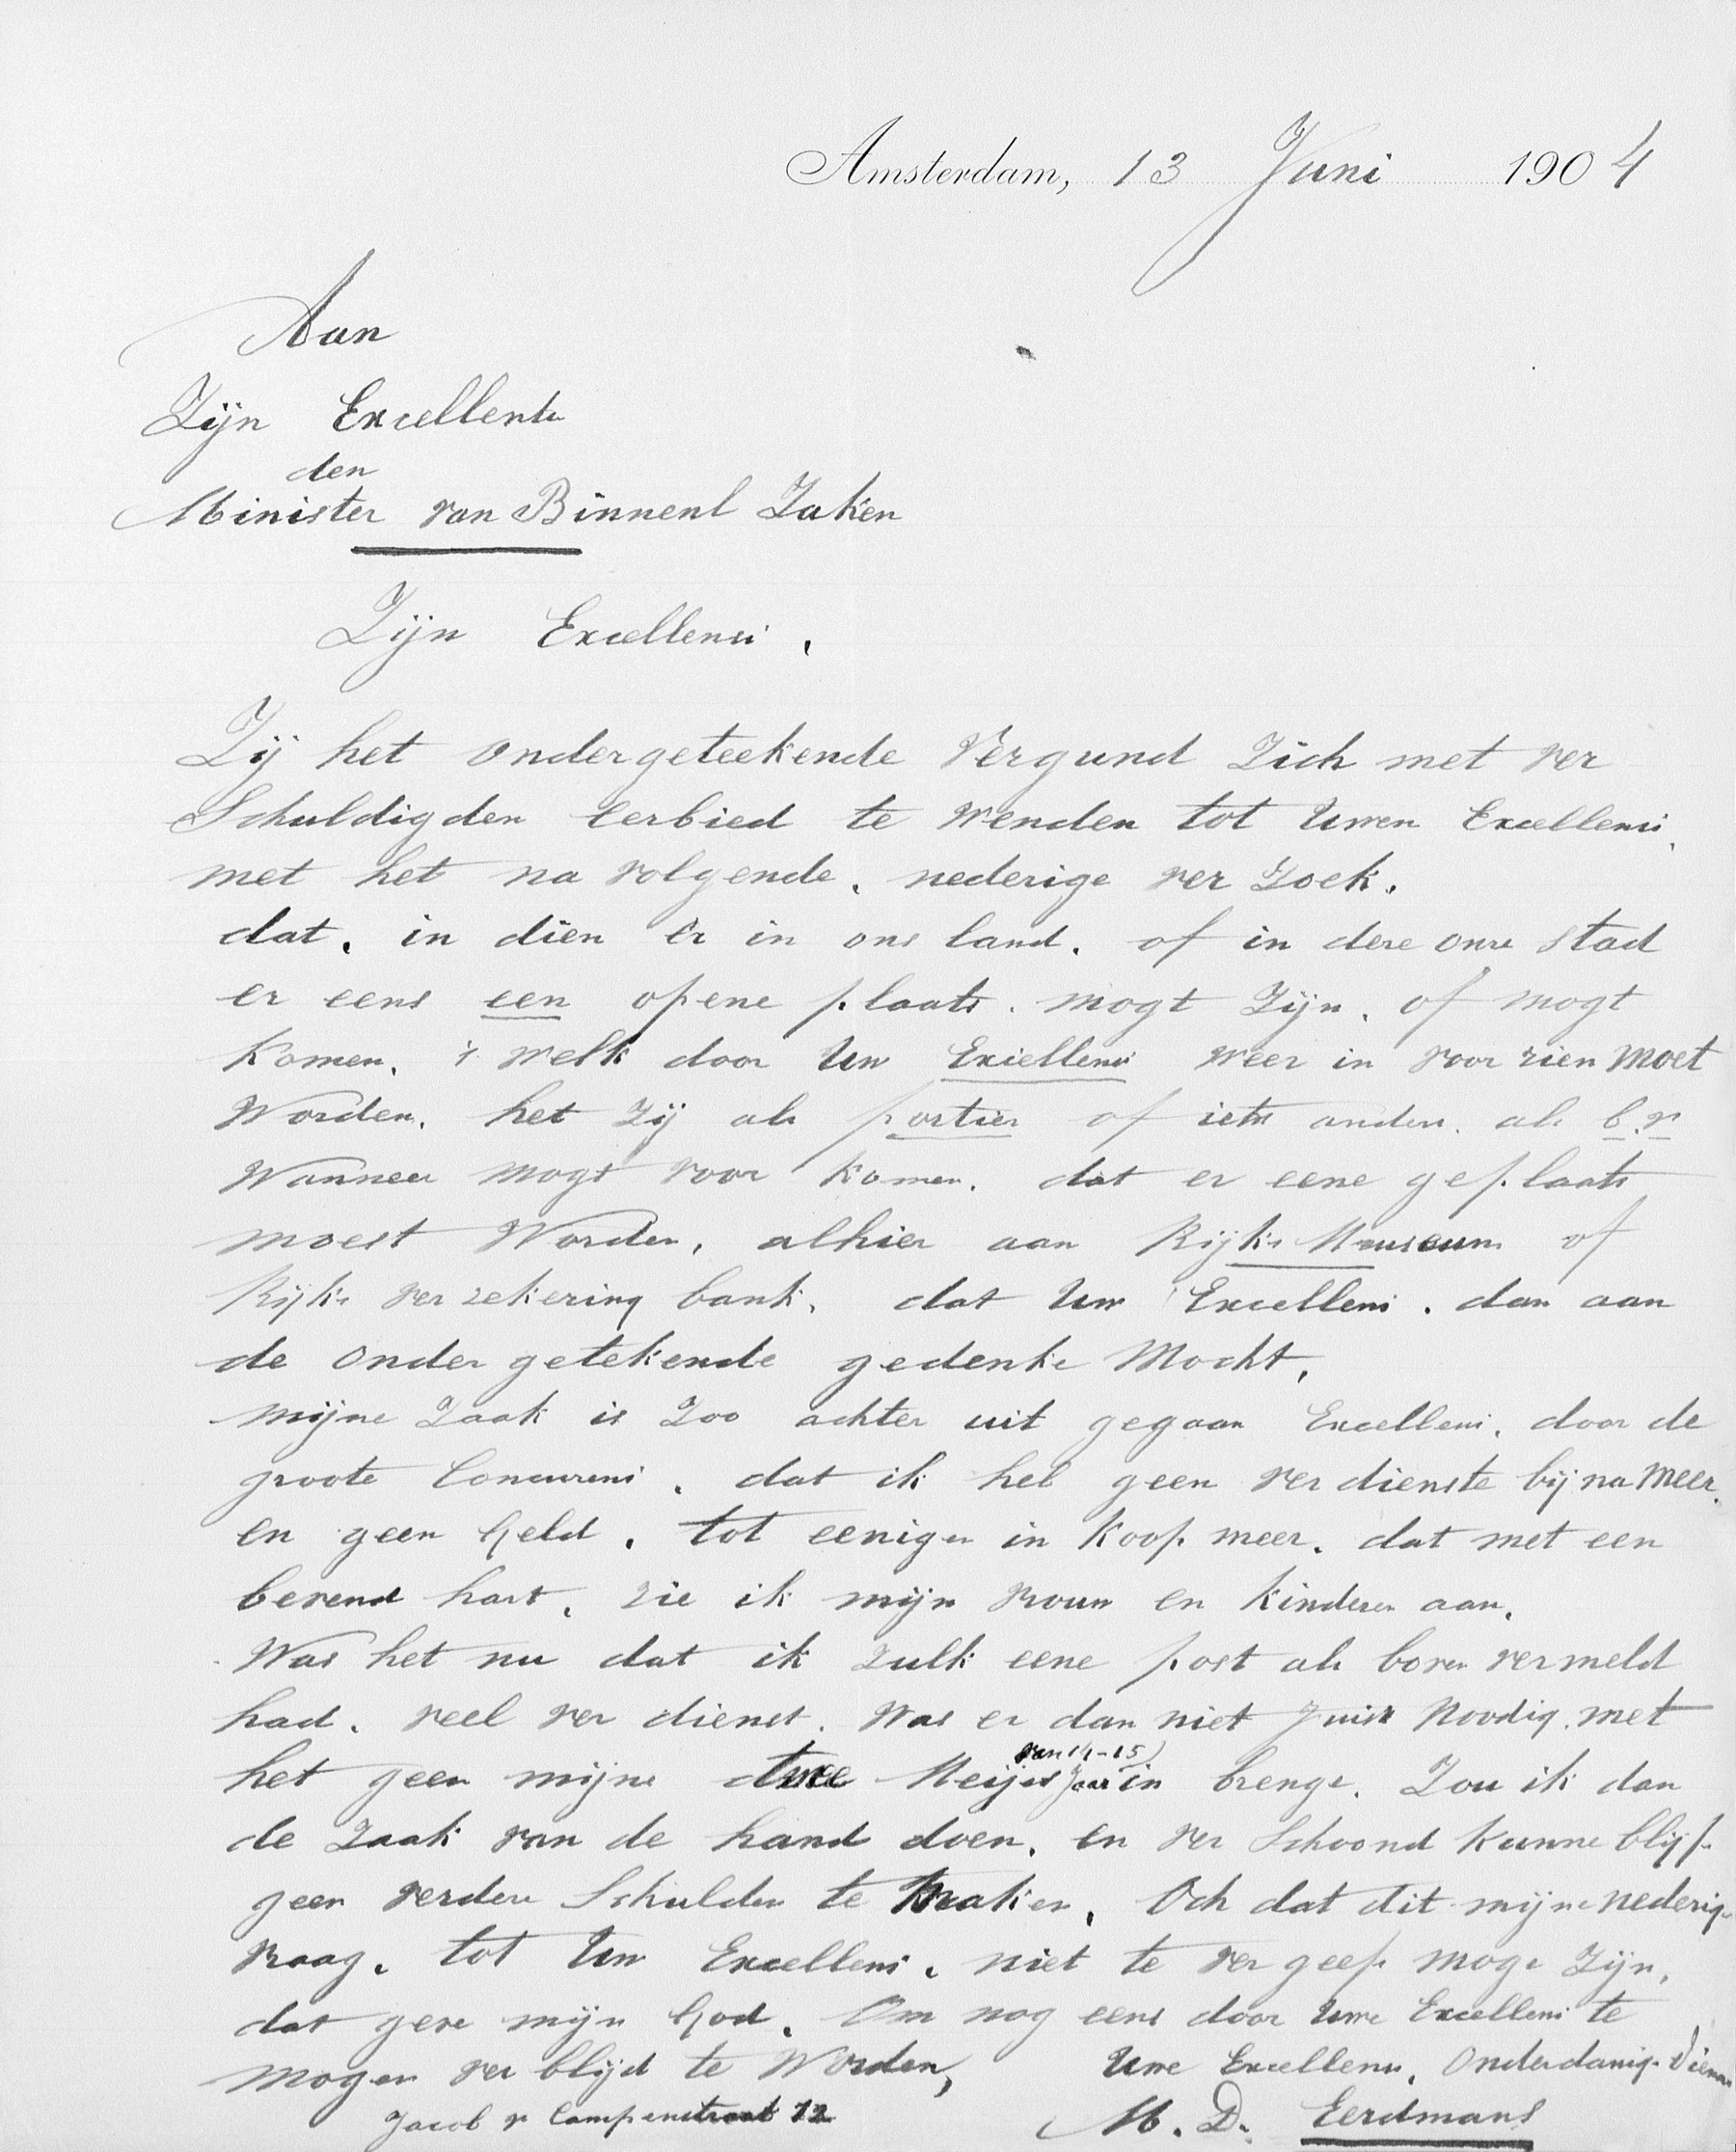 Amsterdam, 13 Juni 1904
Aan
Zijn Excellente
den
Minister van Binnenl Zaken
Zijn Excellensi,
Zij het ondergeteekende Vergund Zich met ver
Schuldigden Eerbied te Wenden tot Uwen Excellensi,
met het na volgende, nederige ver Zoek.
dat, in dien er in ons land, of in deze onze stad
er eens een opene plaats mogt Zijn, of mogt
Komen, 't welk door Uw Exiellensi weer in voor zien moet
Worden, het Zij als portier of iets anders als b.v
Wanneer mogt voor Komen, dat er eene geplaats
moest Worden, alhier aan Rijks Museum of
Rijks ver zekering bank, dat Uw Excellensi, dan aan
de Onder getekende gedenke Mocht,
mijne Zaak is Zoo achter uit gegaan Excellensi, door de
groote Concurensi, dat ik heb geen ver dienste bij na Meer,
en geen Geld, tot eeniger in Koop meer, dat met een
bevend hart, zie ik mijn vrouw en Kinderen aan,
Was het nu dat ik Zulk eene post als boven vermeld
had, veel ver dienst, Was er dan niet Juist Noodig, met
van 14-15
het geen mijne twee Meijes Jaar in brenge, Zou ik dan
de Zaak van de hand doen, en ver Schoond Kunne blijf
geen verdere Schulden te Maken, Och dat dit mijne nederig
Vraag, tot Uw Excellensi, niet te ver geef moge Zijn,
dat geve mijn God, Om nog eens door Uwe Excellensi te
mogen ver blijd te Worden,
Uwe Excellensi, Onderdanig Diena
Jacob v Campenstraat 12
M. D. Eerdmans